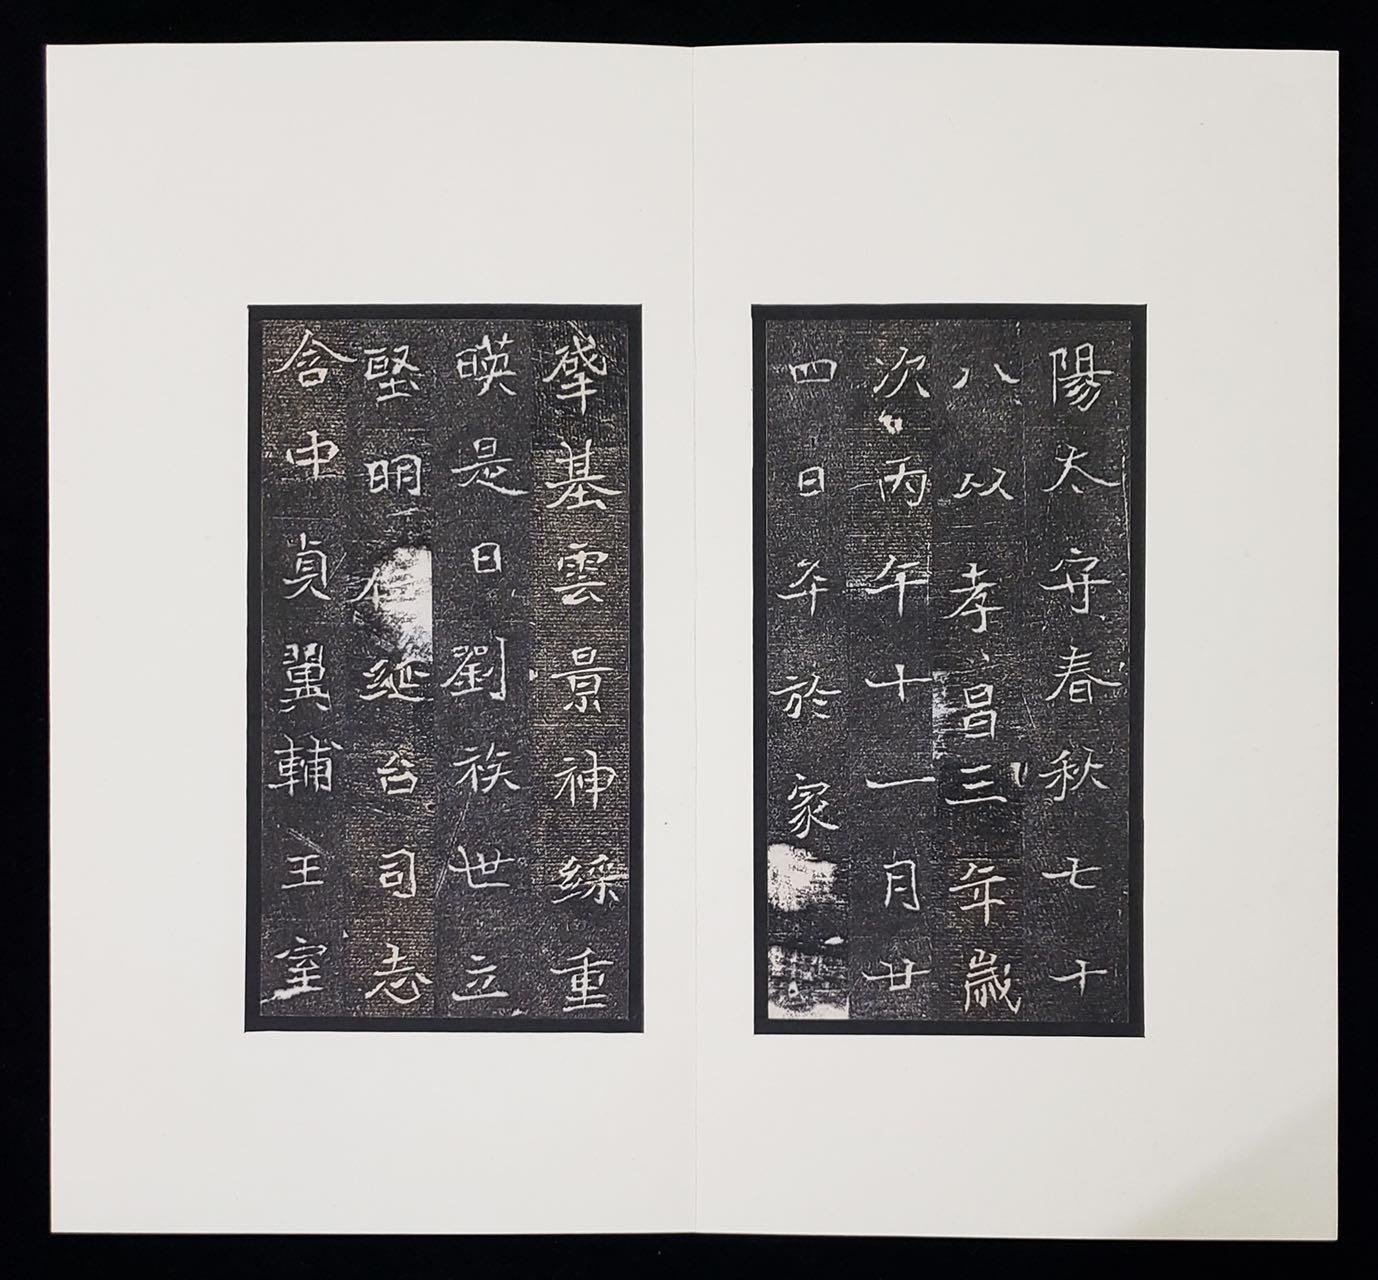 陽太守春秋七十
八以孝昌三年歲
次丙午十一月廿
四日卒於家
肇基雲景神綵重
暎是日劉族世立
堅明綖台司志
含中貞翼輔王室